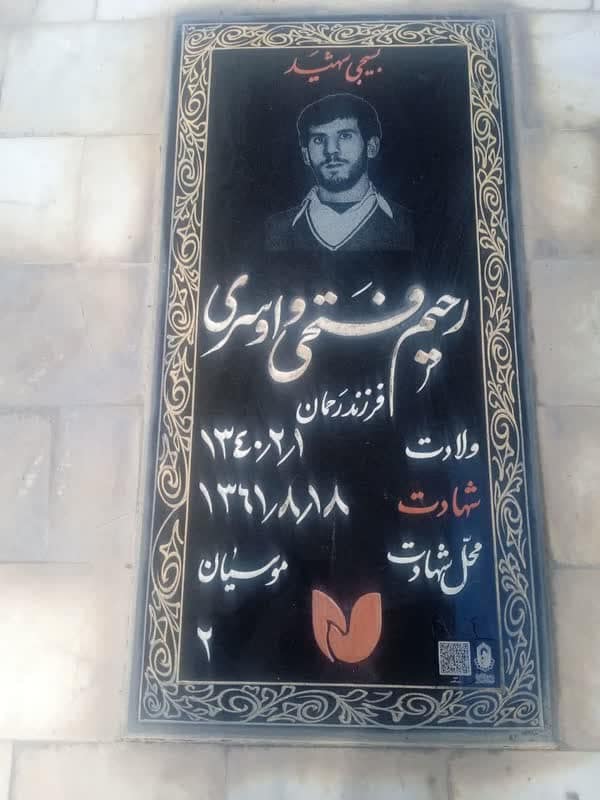 بسیجی شهید
رحیم فتحی واوسری
فرزند رحمان
ولادت ۱۳۴۰٫۲٫۱
شهادت ۱۳۶۱٫۸٫۱۸
محلّ شهادت موسیان
۲